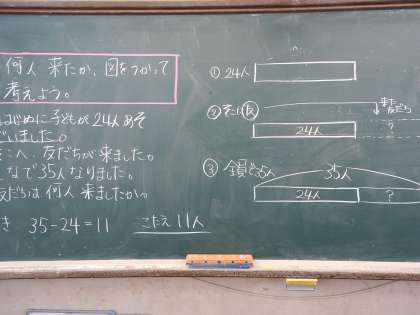 何人 来たか、図をつかって
考えよう。
はじめに子どもが24人あそ
いました。
こへ、友だちが来ました。
なで35人なりました。
友だちは何人来ましたか。
き 35-24=11 こたえ 11人
① 24人
② そこに友
来た
友だち
24人 ?
③ 全員で35人
35人
24人 ?